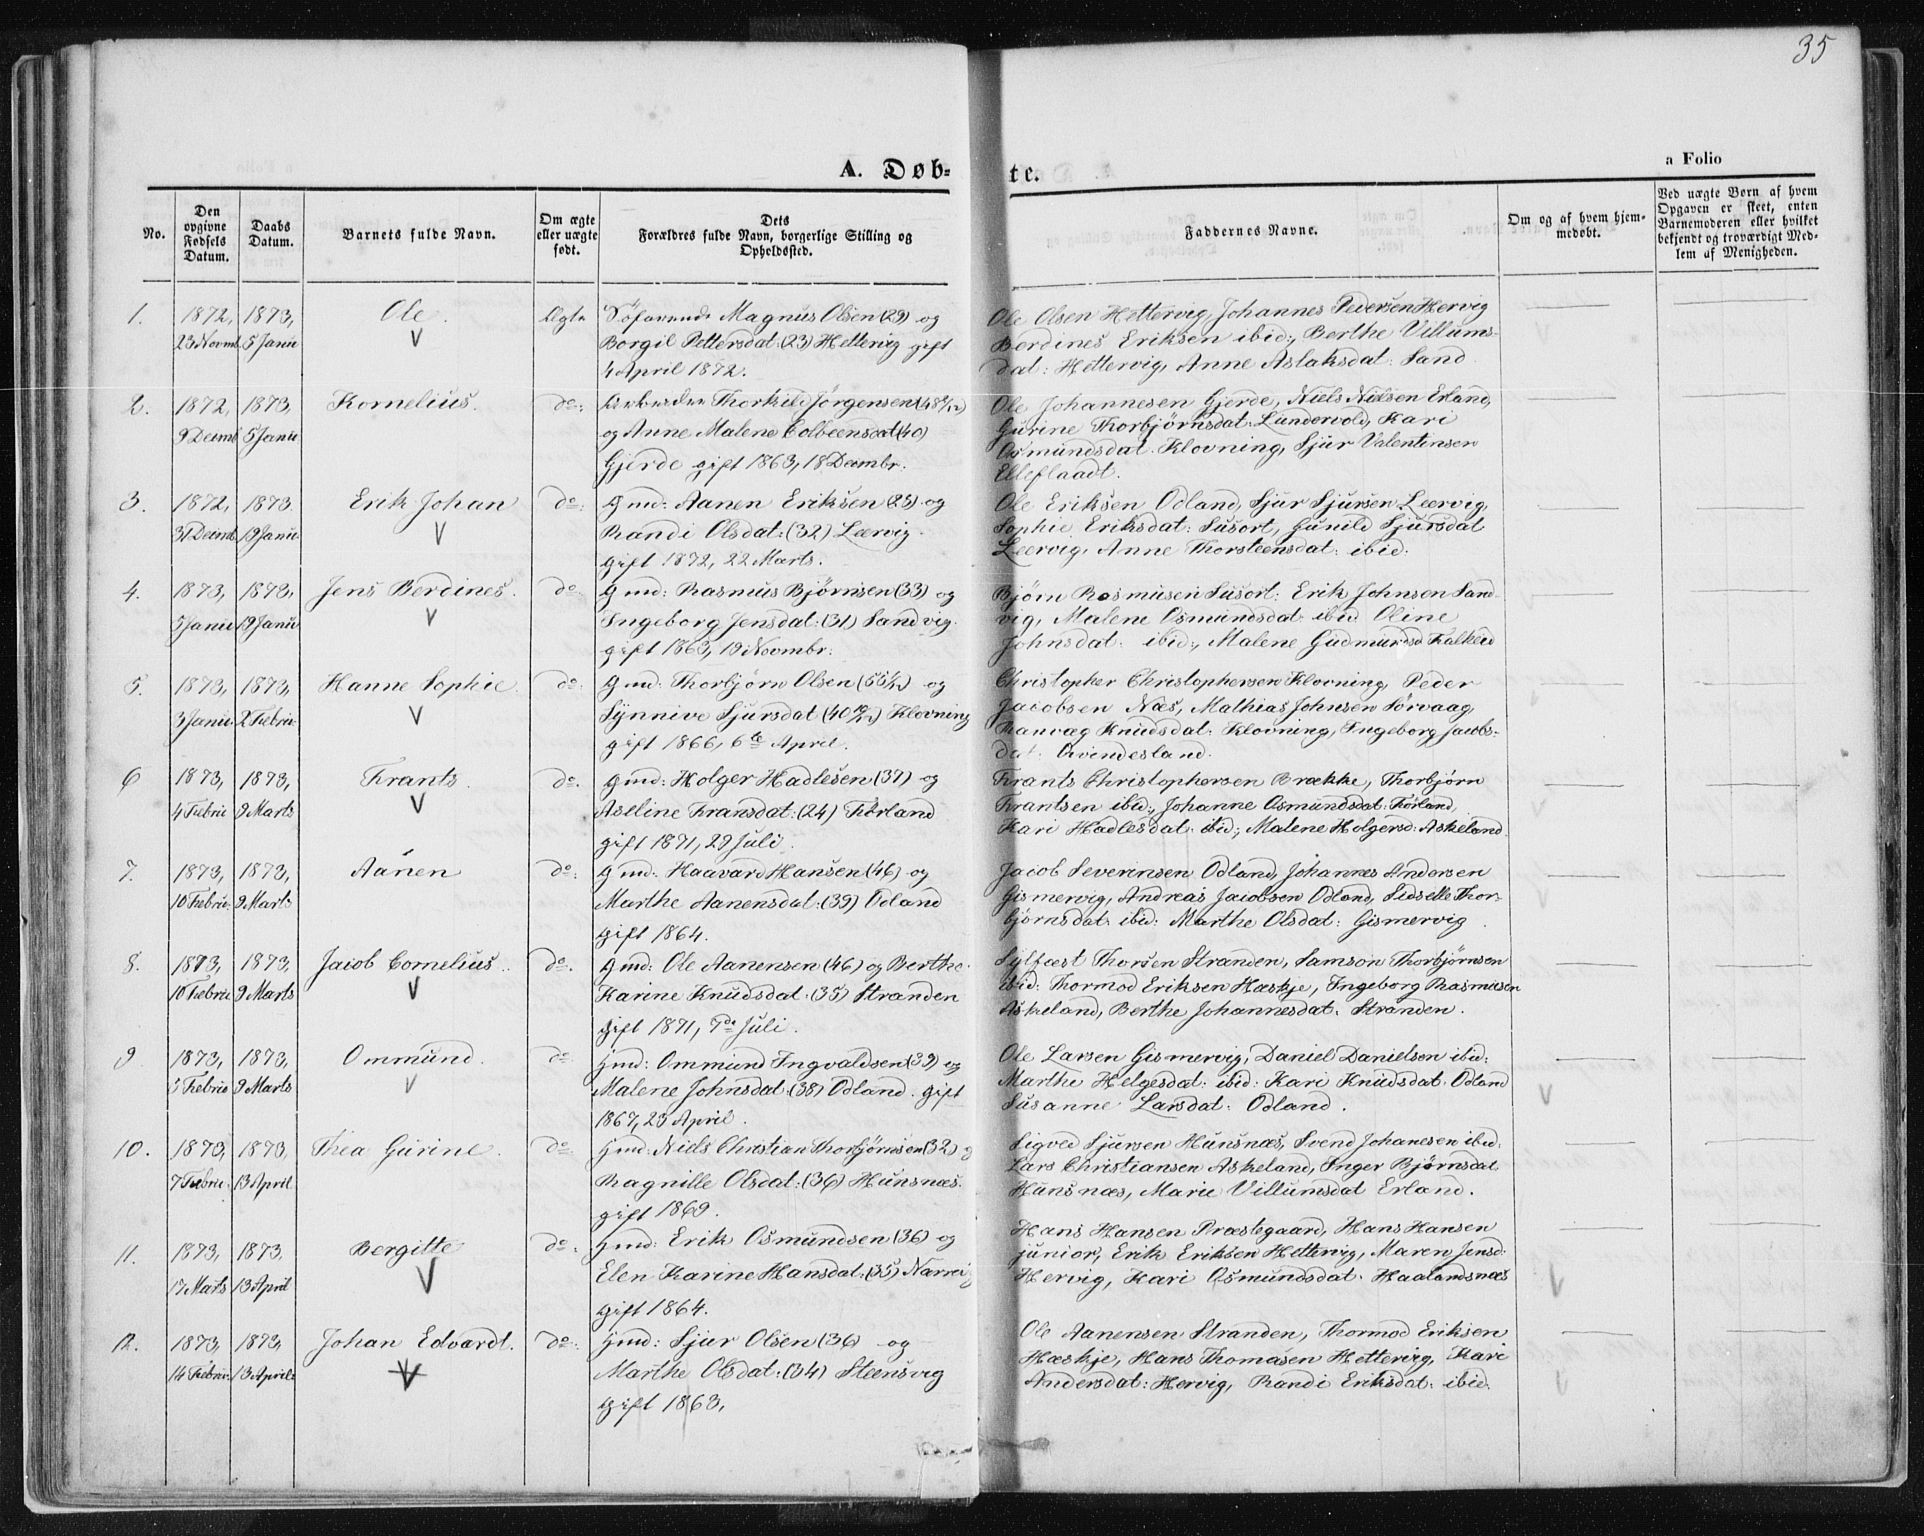 35
a Folio
A. Døb-
te.
No.
Den opgivne Fødsels Datum.
Daabs Datum.
Barnets fulde Navn.
Om ægte eller uægte født.
Dets Forældres fulde Navn, borgerlige Stilling og Opholdssted.
Faddernes Navne.
Om og af hvem hjemmedøbt.
Ved uægte Børn af hvem Opgaven er skeet, enten Barnemoderen eller hvilket bekjendt og troværdigt Medlem af Menigheden.
1. 1872, 1873, Ole. Ægte Søfarende Magnus Olsen (29) og
23 Novmb. 5 Janu Borgil Pettersdat: (23) Hettervig gift
4 April 1872.
Ole Olsen Hettervig, Johannes Pedersen Hervig
Berdines Eriksen ibid:, Berthe Villums-
dat: Hettervig, Anne Aslaksdat: Sand
2. 1872, 1873, Kornelius. do: Thorkild Jørgensen
9 Decmb 5 Janu og Anne Malene (40)
Gjerde gift 1863, 18 Decembr.
Ole Johannesen Gjerde, Niels Nielsen Erland,
Gurine Thorbjørnsdat: Lundervold, Kari
Osmundsdat: Klovning, Sjur Valentinsen
Elleflaadt.
3. 1872, 1873. Erik Johan do: Gmd: Aanen Eriksen (25) og
31 Decmb 19 Janu Randi Olsdat: (32) Leervig.
gift 1872, 22 Marts.
Ole Eriksen Odland, Sjur Sjursen Leervig,
Sophie Eriksdat: Susort, Gunild Sjursdat
Leervig, Anne Thorsteensdat: ibid:
4. 1873, 1873, Jens Berdines. do: Gmd: Rasmus Bjørnsen (33) og
5 Janu 19 Janu Ingeborg Jensdat: (31) Sandvig.
gift 1863, 19 Novmbr:
Bjørn Rasmusen Susort: Erik Johnsen Sand-
vig, Malene Osmundsdat: ibid Oline
Johnsdat: ibid:, Malene Gudmundsd Falkeid
5. 1873, 1873, Hanne Sophie. do: Gmd: Thorbjørn Olsen og
3 Janu. 2 Febru Synnive Sjursdat Klovning
gift 1866, 6te April.
Christopher Christophersen Klovning, Peder
Jacobsen Næs, Mathias Johnsen Sørvaag,
Ranvæg Knudsdat: Klovning, Ingeborg Jacobs-
dat: Qvindesland.
6 1873, 1873, Frants. do. Gmd: Holger Hadlesen (37) og
4 Febru 9 Marts Aselline Fransdat: (24) Førland
gift 1871, 29 Juli.
Frants Christophersen Brække, Thorbjørn
Frantsen ibid:, Johanne Osmundsdat: Førland,
Kari Hadlesdat: ibid:, Malene Holgersd: Askeland.
7. 1873, 1873, Aanen do: Gmd: Haavard Hansen (46) og
10 Febru. 9 Marts Marthe Aanensdat: (39) Odland
gift 1864.
Jacob Severinsen Odland, Johannes Andersen
Gismervig, Andreas Jacobsen Odland, Sidselle Thor-
bjørnsdat: ibid: Marthe Olsdat: Gismervig
8. 1873, 1873, Jacob Cornelius. do. Gmd: Ole Aanensen (46) og Berthe
10 Febru 9 Marts Karine Knudsdat: (35) Stranden
gift 1871, 7de Juli.
Sylfæst Thorsen Stranden, Samson Thorbjørnsen
ibid: Thormod Eriksen Hæskje, Ingeborg Rasmusen
Askeland, Berthe Johannesdat: Stranden.
9 1873, 1873, Ommund. do: Gmd: Ommund Ingvaldsen (39) og
5 Febru 9 Marts Malene Johnsdat: (38) Odland. gift
1867, 23 April.
Ole Larsen Gismervig, Daniel Danielsen ibid:
Marthe Helgesdat: ibid: Kari Knudsdat: Odland
Susanne Larsdat: Odland.
10. 1873, 1873, Thea Gurine. do: Gmd: Niels Christian Thorbjørnsen (32) og
7 Febru. 13 April Ragnille Olsdat: (36) Hunsnæs.
gift 1869.
Sigved Sjursen Hunsnæs, Svend Johanesen ibid:
Lars Christiansen Askeland, Inger Bjørnsdat
Hunsnæs, Marie Villumsdat Erland.
11. 1873, 1873, Bergitte do: Gmd: Erik Osmundsen (36) og
17 Marts 13 April Elen Karine Hansdat: (35)
gift 1864.
Hans Hansen Præstegaard, Hans Hansen
junior, Erik Eriksen Hettervig, Maren Jensd:
Hervig, Kari Osmundsdat: Haalandsnæs
12. 1873, 1873, Johan Edvardt. do: Gmd: Sjur Olsen (36) og
14 Febru. 13 April Marthe Olsdat: (34) Steensvig
gift 1863,
Ole Aanensen Stranden, Thormod Eriksen
Hæskje, Hans Thomasen Hettervig, Kari
Andersdat: Hervig, Randi Eriksdat: ibid.